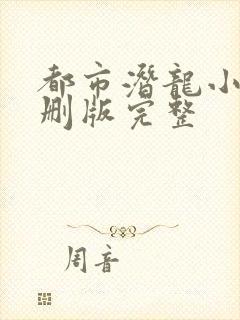 都市潛龍小
删版完整
周音